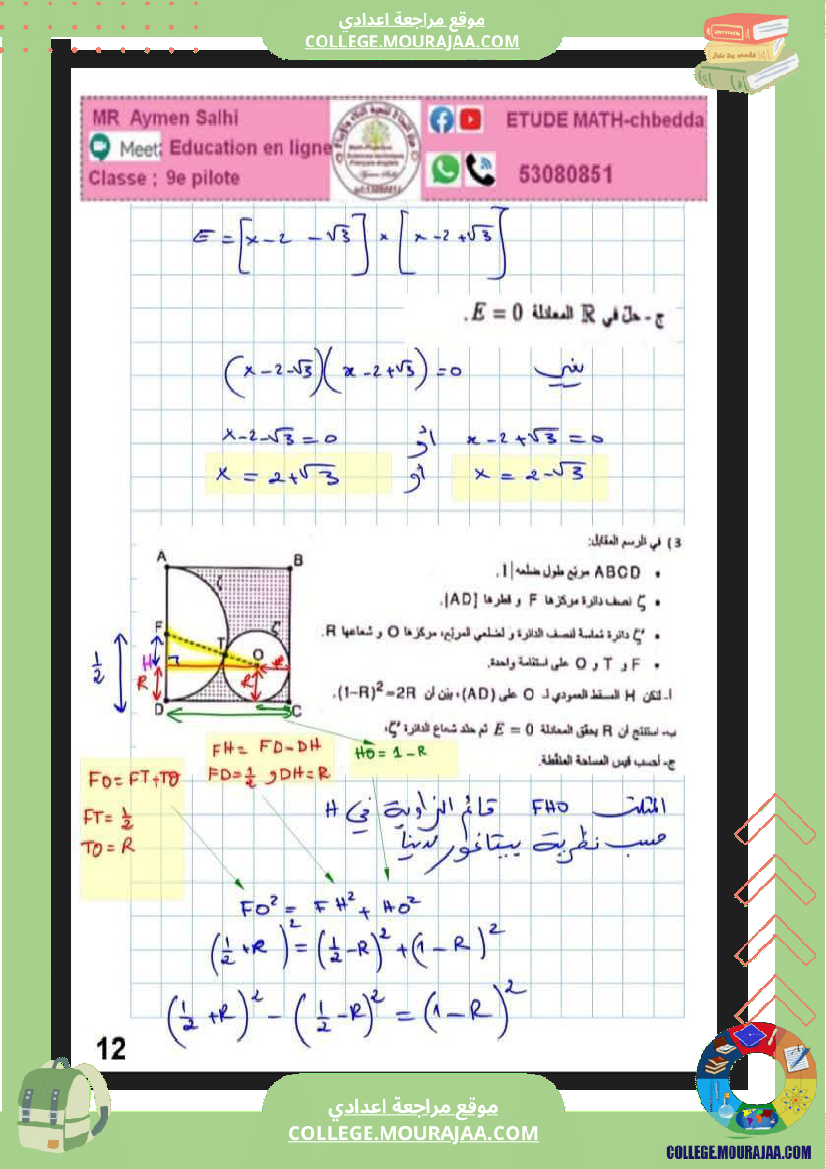 موقع مراجعة اعدادي
COLLEGE.MOURAJAA.COM
MR Aymen Salhi
Meet: Education en ligne
Classe ; 9e pilote
ETUDE MATH-chbedda
53080851
E = [x - 2 - √3] × [x - 2 + √3]
ج - حلّ في ℝ المعادلة E = 0.
يعني (x - 2 - √3)(x - 2 + √3) = 0
x - 2 - √3 = 0 أو x - 2 + √3 = 0
x = 2 + √3 أو x = 2 - √3
3) في الرسم المقابل:
• ABCD مربّع طول ضلعه 1.
• ζ نصف دائرة مركزها F و قطرها [AD].
• ζ' دائرة مماسة لنصف الدائرة و لضلعي المربّع، مركزها O و شعاعها R.
• F و T و O على استقامة واحدة.
أ- لتكن H المسقط العمودي لـ O على (AD)، بيّن أن (1-R)²=2R.
ب- استنتج أن R يحقق المعادلة E = 0 ثم حدّد شعاع الدائرة ζ'.
ج- أحسب قيس المساحة المنقّطة.
A
B
ζ
F
T
ζ'
O
H
1/2
R
R
R
D
C
FO = FT + TO
FT = 1/2
TO = R
FH = FD - DH
FD = 1/2 و DH = R
HO = 1 - R
المثلث FHO قائم الزاوية في H
حسب نظرية بيتاغور لدينا
FO² = FH² + HO²
(1/2 + R)² = (1/2 - R)² + (1 - R)²
(1/2 + R)² - (1/2 - R)² = (1 - R)²
12
موقع مراجعة اعدادي
COLLEGE.MOURAJAA.COM
COLLEGE.MOURAJAA.COM